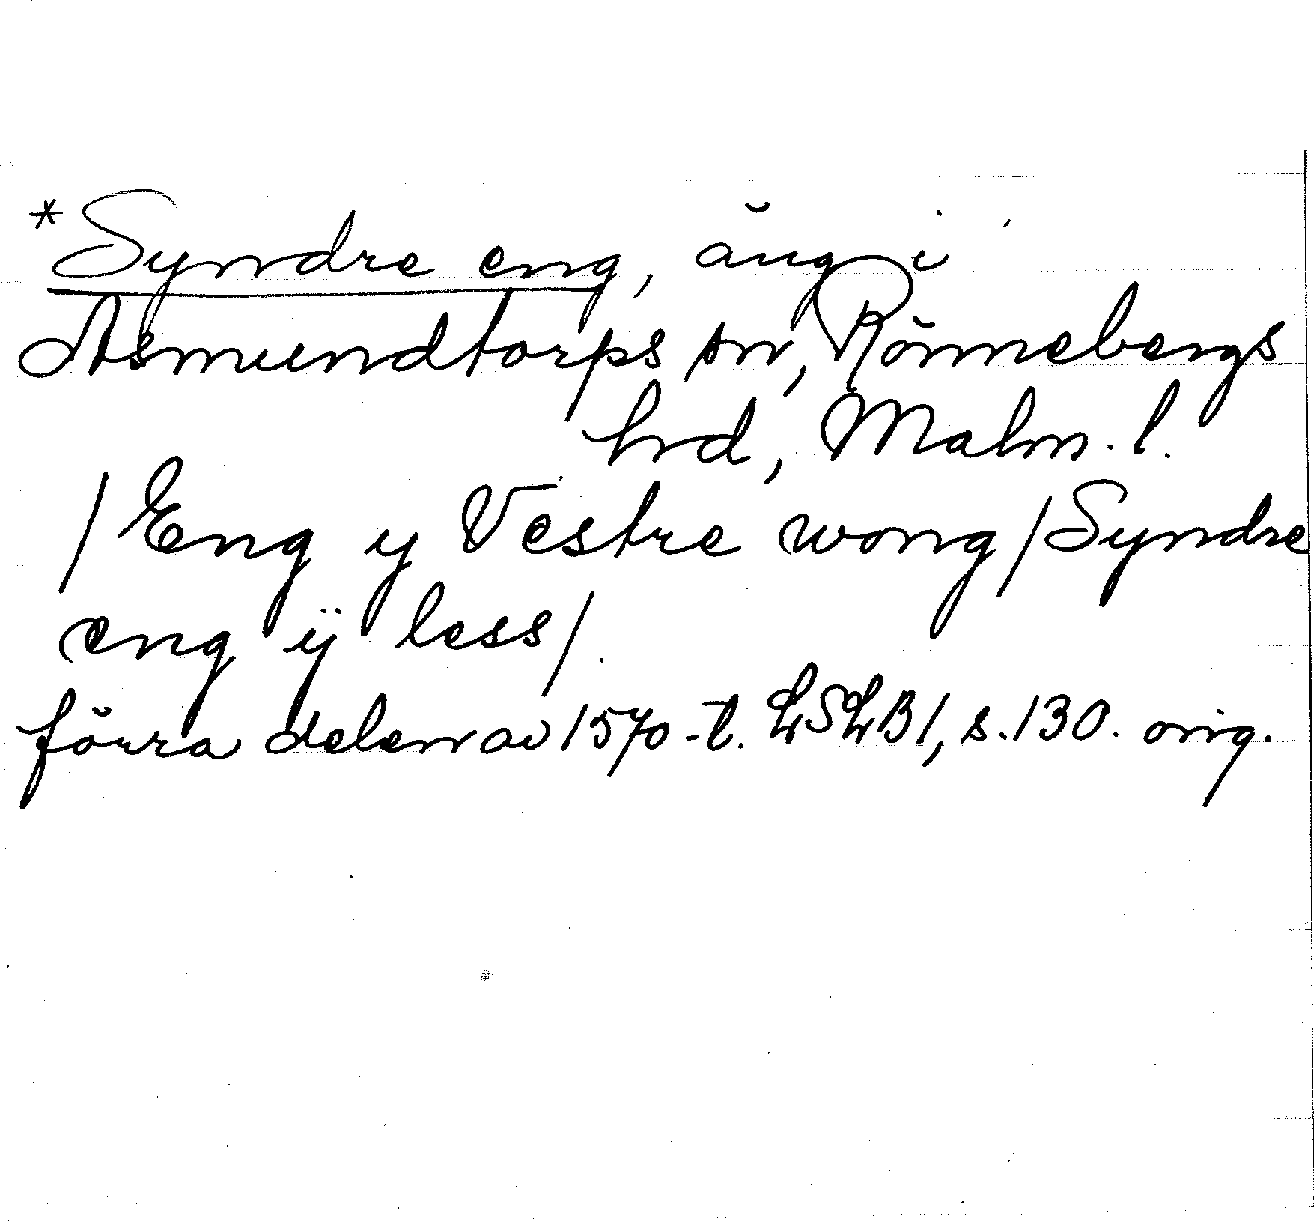 *Syndre eng, äng i
Asmundtorps sn, Rönnebergs
hrd, Malm. l.
/Eng y Vestre wong/Syndre
eng ÿ less/
förra delen av 1570-t. LSLB1, s. 130. orig.